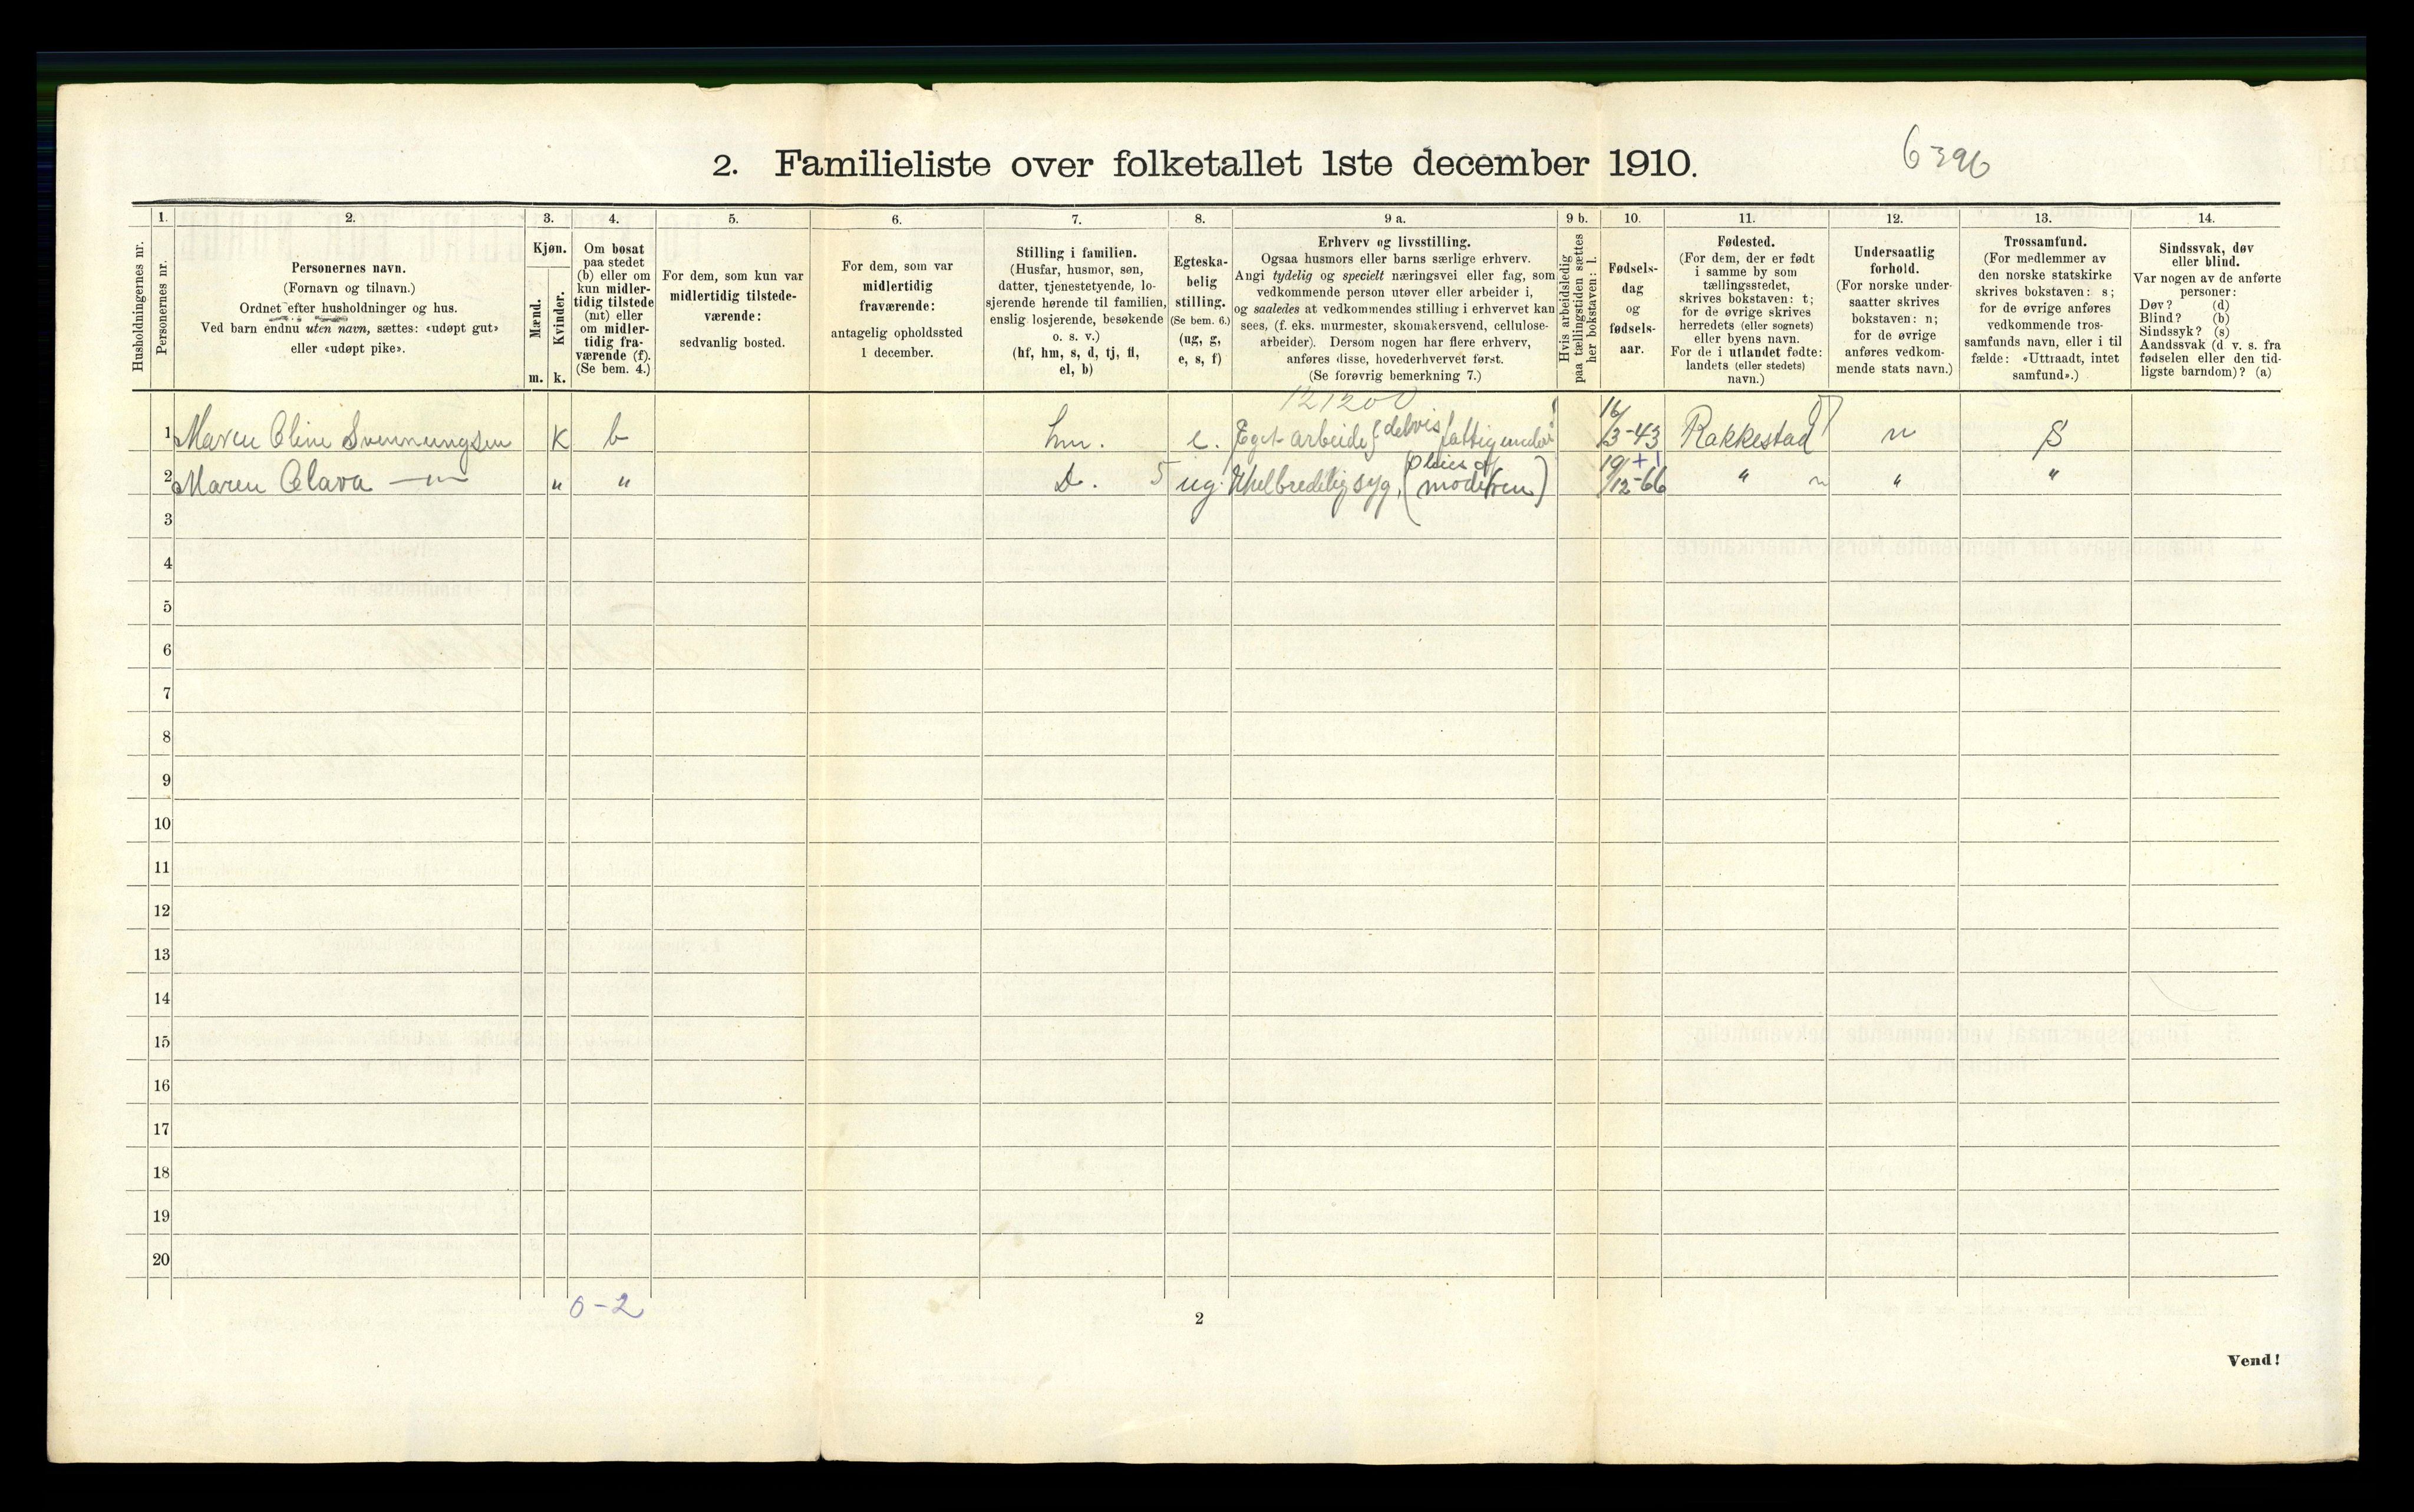 2. Familieliste over folketallet 1ste december 1910.
6396
1.
2.
3.
4.
5.
6.
7.
8.
9 a.
9 b.
10.
11.
12.
13.
14.
Husholdningernes nr.
Personernes nr.
Personernes navn.
(Fornavn og tilnavn.)
Ordnet efter husholdninger og hus.
Ved barn endnu uten navn, sættes: «udøpt gut»
eller «udøpt pike».
Kjøn.
Mænd.
Kvinder.
m.
k.
Om bosat
paa stedet
(b) eller om
kun midler-
tidig tilstede
(mt) eller
om midler-
tidig fra-
værende (f).
(Se bem. 4.)
For dem, som kun var
midlertidig tilstede-
værende:
sedvanlig bosted.
For dem, som var
midlertidig
fraværende:
antagelig opholdssted
1 december.
Stilling i familien.
(Husfar, husmor, søn,
datter, tjenestetyende, lo-
sjerende hørende til familien,
enslig losjerende, besøkende
o. s. v.)
(hf, hm, s, d, tj, fl,
el, b)
Egteska-
belig
stilling.
(Se bem. 6.)
(ug, g,
e, s, f)
Erhverv og livsstilling.
Ogsaa husmors eller barns særlige erhverv.
Angi tydelig og specielt næringsvei eller fag, som
vedkommende person utøver eller arbeider i,
og saaledes at vedkommendes stilling i erhvervet kan
sees, (f. eks. murmester, skomakersvend, cellulose-
arbeider). Dersom nogen har flere erhverv,
anføres disse, hovederhvervet først.
(Se forøvrig bemerkning 7.)
Hvis arbeidsledig
paa tællingstiden sættes
her bokstaven: l.
Fødsels-
dag
og
fødsels-
aar.
Fødested.
(For dem, der er født
i samme by som
tællingsstedet,
skrives bokstaven: t;
for de øvrige skrives
herredets (eller sognets)
eller byens navn.
For de i utlandet fødte:
landets (eller stedets)
navn.)
Undersaatlig
forhold.
(For norske under-
saatter skrives
bokstaven: n;
for de øvrige
anføres vedkom-
mende stats navn.)
Trossamfund.
(For medlemmer av
den norske statskirke
skrives bokstaven: s;
for de øvrige anføres
vedkommende tros-
samfunds navn, eller i til
fælde: «Uttraadt, intet
samfund».)
Sindssvak, døv
eller blind.
Var nogen av de anførte
personer:
Døv? (d)
Blind? (b)
Sindssyk? (s)
Aandssvak (d v. s. fra
fødselen eller den tid-
ligste barndom)? (a)
121200
1 Maren Oline Svennungsen K b hm. e. Eget arbeide, delvis fattigunder 16/3-43 Rakkestad n S
2 Maren Olava —"— " " D. 5 ug. Uhelbredelig syg, (pleies af moderen) 19/12-66 " " "
3
4
5
6
7
8
9
10
11
12
13
14
15
16
17
18
19
20
0-2
2
Vend!